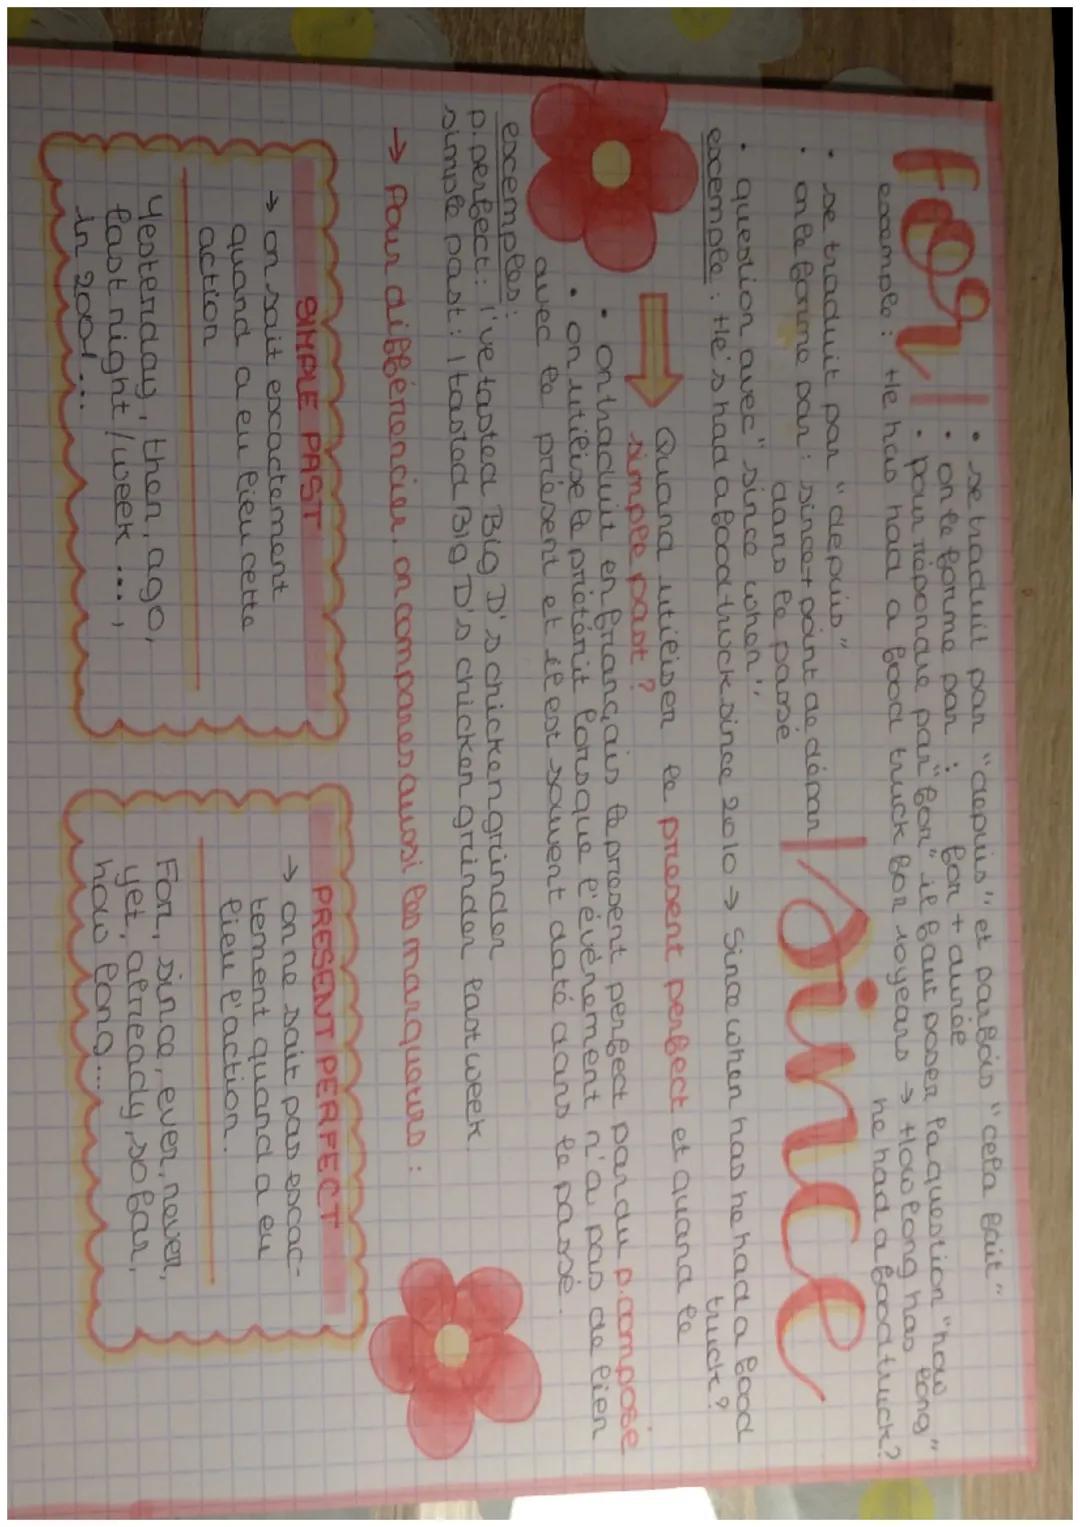 For
• se traduit par "depuis" et parfois "cela fait"
• on le forme par : for + durée
• pour répondre par "for" il faut poser la question "how long"
exemple : He has had a food truck for 10 years → How long has
he had a food truck?
Since
• se traduit par "depuis"
• on le forme par : since + point de départ
dans le passé
• question avec "since when"
exemple : He's had a food truck since 2010 → Since when has he had a food
truck?
Quand utiliser le present perfect et quand le
simple past ?
• on traduit en français le present perfect par du p. composé
• on utilise le prétérit lorsque l'événement n'a pas de lien
avec le présent et il est souvent daté dans le passé.
exemples:
p. perfect: I've tasted Big D's chicken grinder
simple past : I tasted Big D's chicken grinder last week.
→ Pour différencier, on compare aussi les marqueurs :
SIMPLE PAST
→ on sait exactement
quand a eu lieu cette
action
Yesterday, then, ago,
last night / week ...,
in 2001...
PRESENT PERFECT
→ on ne sait pas exac-
tement quand a eu
lieu l'action.
For, since, ever, never,
yet, already, so far,
how long...